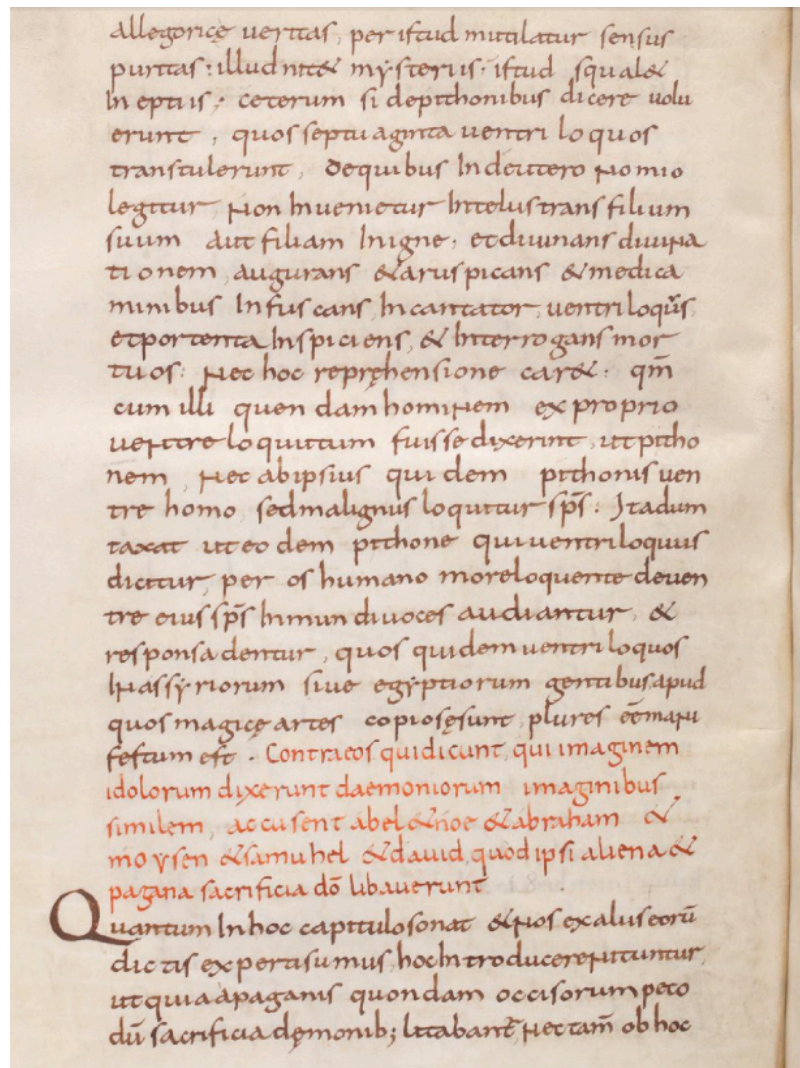 allegoricę veritas, per istud mutilatur sensus
puritas: illud nit& mysteriis. istud squal&
Ineptiis; ceterum si depithonibus dicere volu
erunt, quos septuaginta ventriloquos
transtulerunt, dequibus Indeuteronomio
legitur, Non Invenietur Intelustrans filium
suum aut filiam Inigne, etdivinans divina
tionem, augurans & aruspicans & medica
minibus Infuscans, Incantator, ventriloquus,
etportenta Inspiciens, & Interrogans mor
tuos: Nec hoc repręhensione car&. qm̄
cum illi quendam hominem ex proprio
ventreloquutum fuissedixerint, ut pitho
nem, Nec abipsius quidem pithonisven
tre homo sedmalignus loquitur sp̄s: Itadum
taxat ut eodem pithone quiventriloquus
dicitur, per os humano moreloquente deven
tre eius sp̄s Inmundivoces audiantur, &
responsa dentur, quos quidemventriloquos
InAssyriorum sive egyptiorum gentibusapud
quos magicę artes copiosęsunt plures eēmani
festum est. Contraeos quidicunt, qui imaginem
idolorum dixerunt daemoniorum imaginibus
similem, accusent abel & noe & abraham &
moysen & samuhel & david, quod ipsi aliena &
pagana sacrificia dō libaverunt
Quantum In hoc capitulosonat & Nos exaliiseorū
dictis expertisumus, hocIntroducereNituntur,
ut quia apaganis quondam occisorumpeco
dū sacrificia dęmonib; litabant' Nectam̄ ob hoc